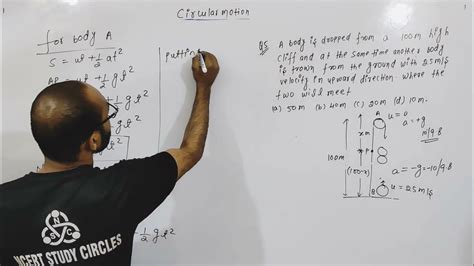 Circular motion
for body A
S = ut + ½ at²
½ g t²
½ g t²
t²
½ g t²
putting
Q5 A body is dropped from a 100m high
cliff and at the same time another body
is trown from the ground with 25m/s
velocity in upward direction where the
two will meet
(a) 50m (b) 40m (c) 20m (d) 10m.
A u = 0
a = +g
10/9.8
100m
x m
P
(100-x)
a = -g = -10/9.8
B u = 25m/s
NSC
NCERT STUDY CIRCLES